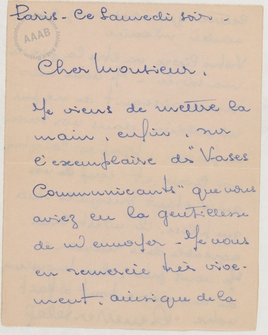 Paris - Ce Samedi soir -
AAAB
Cher Monsieur,
Je viens de mettre la
main, enfin, sur
l'exemplaire ds "Vases
Communicants" que vous
aviez eu la gentillesse
de m'envoyer - Je vous
en remercie très vive-
ment, ainsi que de la